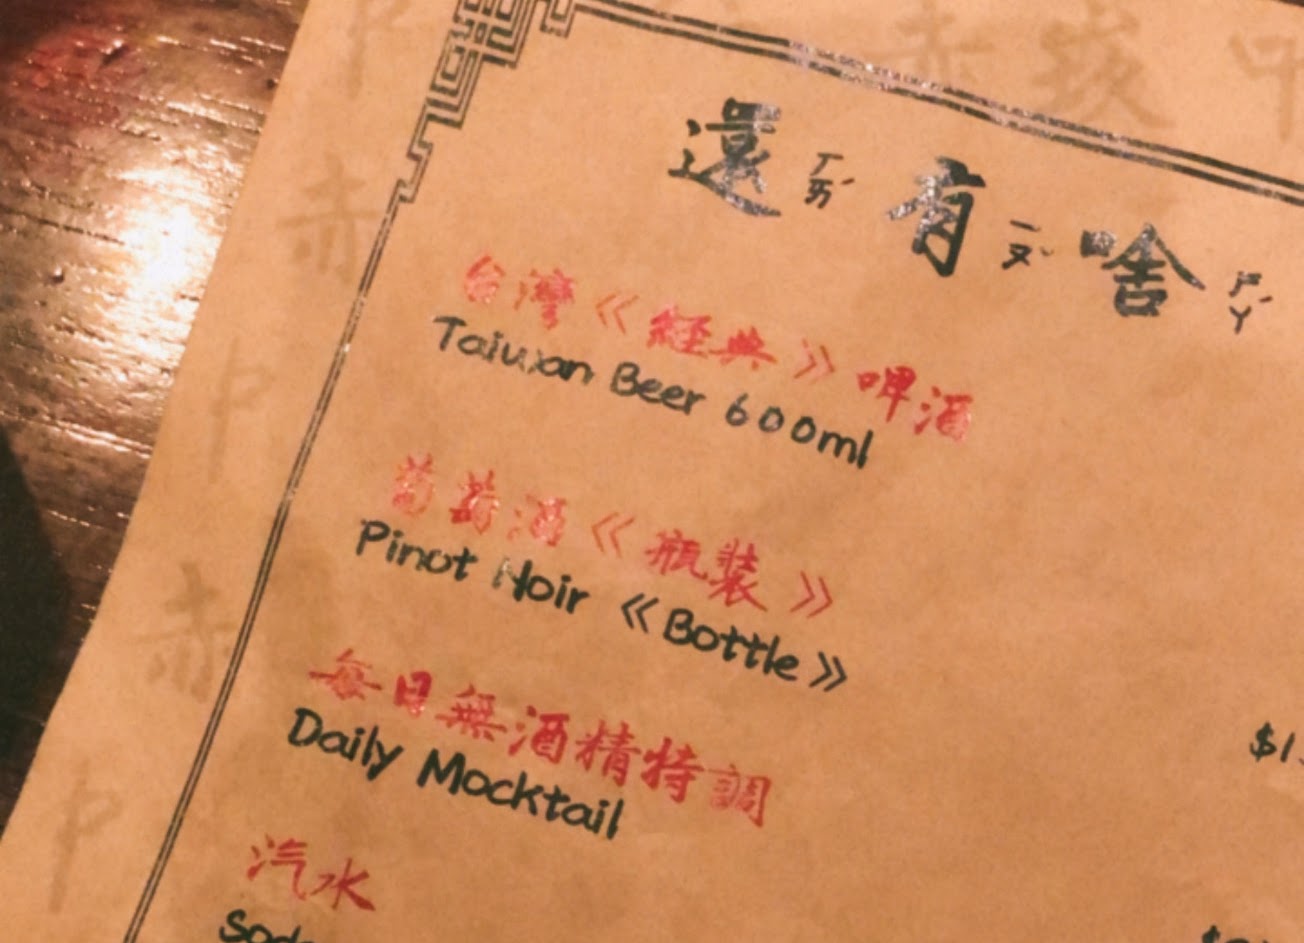 還ㄏㄞˊ有ㄧㄡˇ啥ㄕㄚˊ
台灣《經典》啤酒
Taiwan Beer 600ml
葡萄酒《瓶裝》
Pinot Noir《Bottle》
每日無酒精特調
Daily Mocktail
汽水